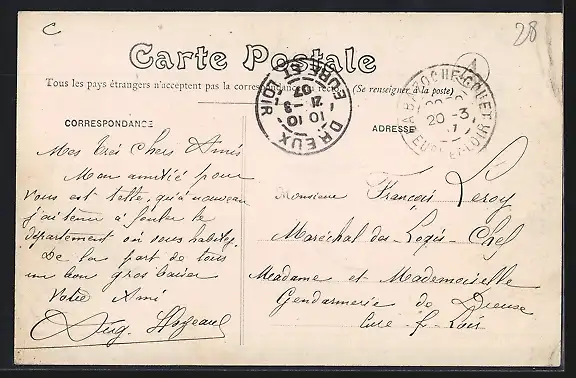 C
28
Carte Postale
Tous les pays étrangers n'acceptent pas la correspondance au recto (Se renseigner à la poste)
A
DREUX
10 10
21 -3
07
EURE ET LOIR
20 -3
EURE-ET-LOIR
CORRESPONDANCE
ADRESSE
Mes très chers Amis
Mon amitié pour
vous est telle, qu'à nouveau
j'ai tenu à fouler le
département où vous habitez.
De la part de tous
un bon gros baiser
Votre Ami
Aug.
Monsieur François Leroy
Maréchal des Logis-Chef
Madame et Mademoiselle
Gendarmerie de Dreux
Eure & Loir